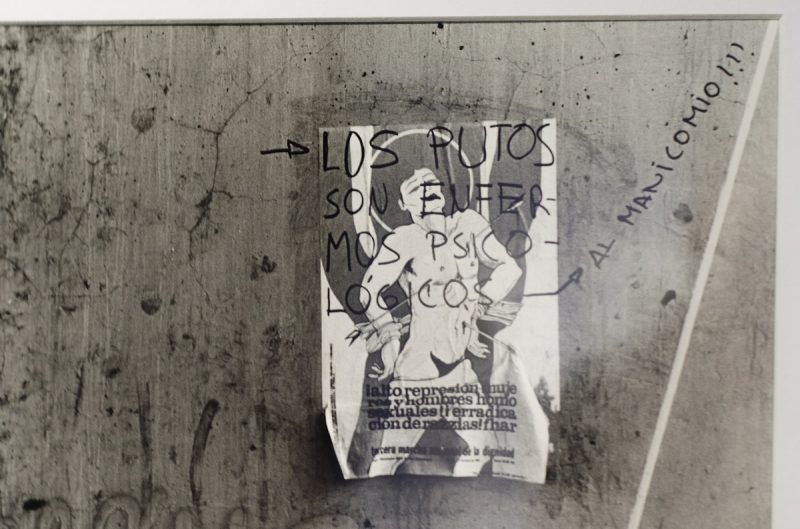 → LOS PUTOS
SON ENFER-
MOS PSICO-
LOGICOS → AL MANICOMIO!!!
¡alto represión a muje
res y hombres homo
sexuales!¡erradica
ción de razzias! fhar
tercera marcha nacional de la dignidad